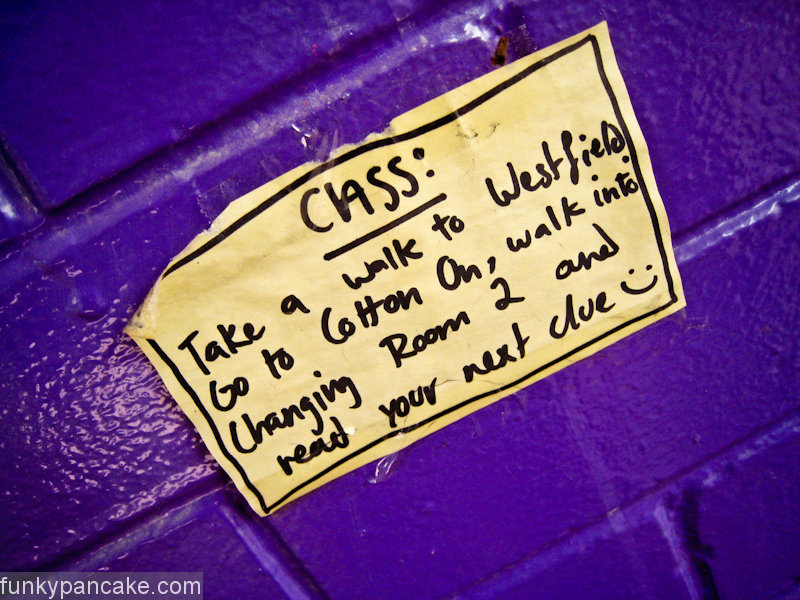 CLASS:
Take a walk to Westfield
Go to Cotton On, walk into
Changing Room 2 and
read your next clue
funkypancake.com